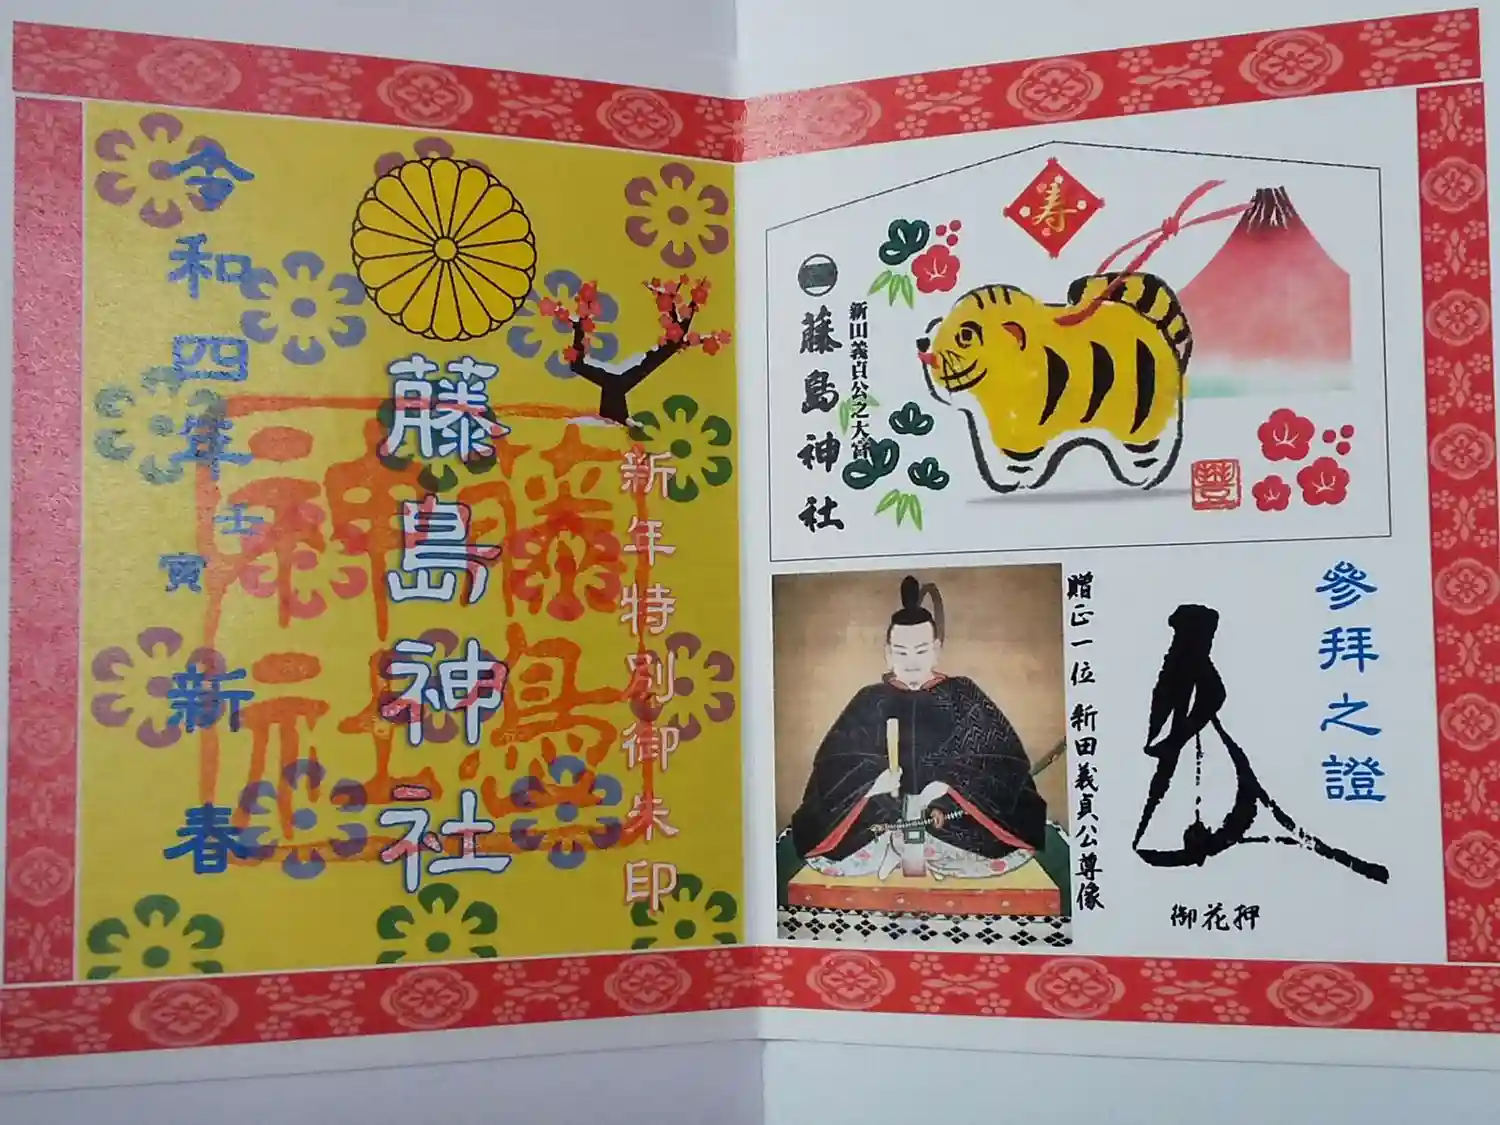 参拝之證
御花押
贈正一位 新田義貞公尊像
寿
新田義貞公之大宮
藤島神社
新年特別御朱印
藤島神社
藤島神社
令和四年壬寅新春